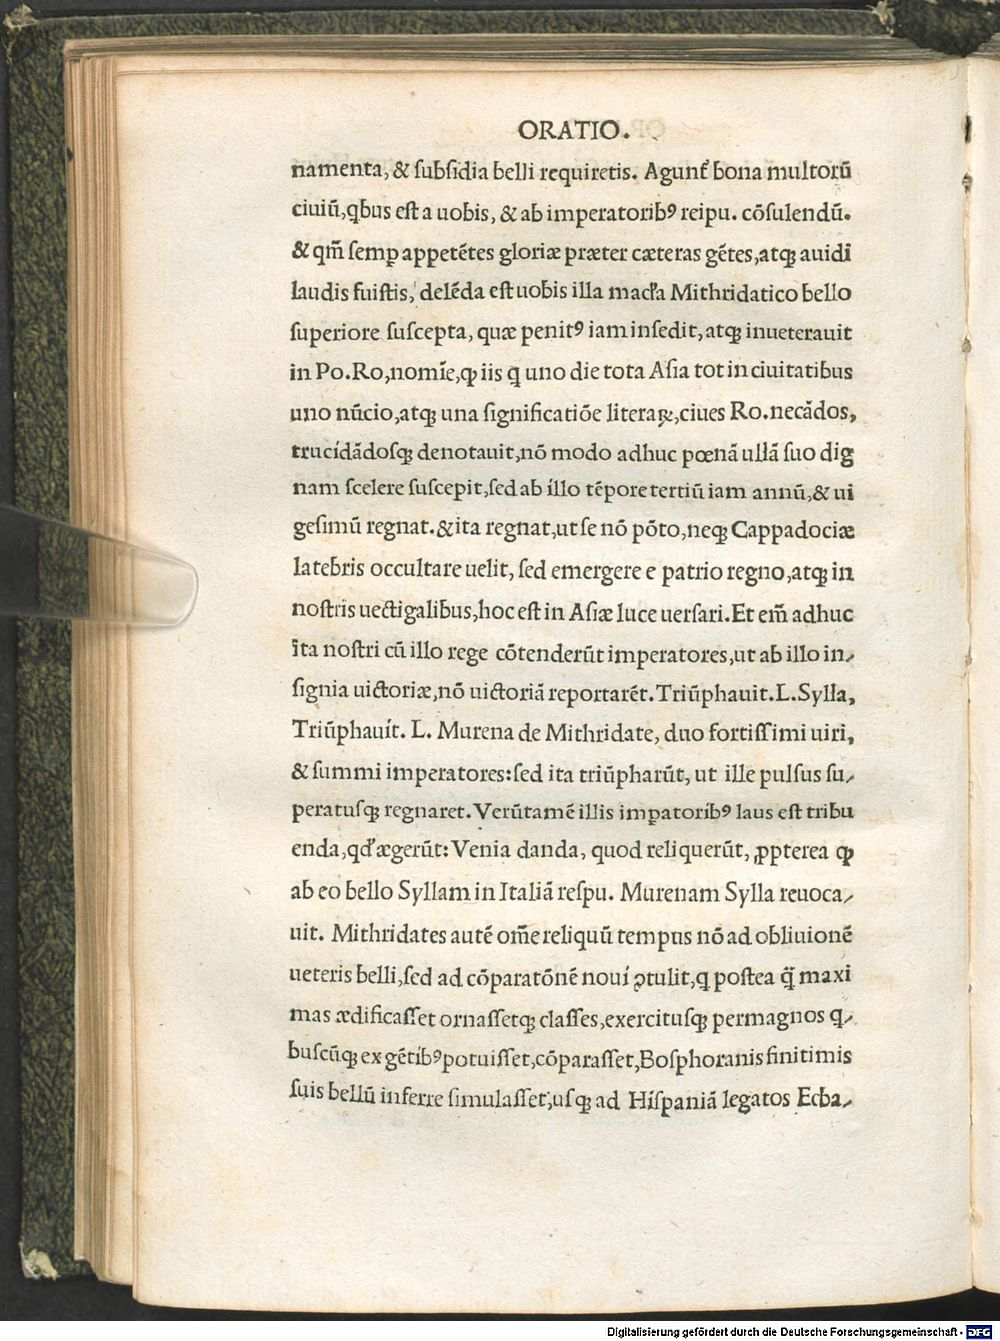 ORATIO.
namenta, & ſubſidia belli requiretis. Agunt᷑ bona multorū
ciuiū, qbus eſt a uobis, & ab imperatoribꝰ reipu. cōſulendū.
& qm̄ ſemꝑ appetētes gloriæ præter cæteras gētes, atqꝫ auidi
laudis fuiſtis, delēda eſt uobis illa macl̓a Mithridatico bello
ſuperiore ſuſcepta, quæ penitꝰ iam inſedit, atqꝫ inueterauit
in Po. Ro, nomīe, ꝙ iis q̣ uno die tota Aſia tot in ciuitatibus
uno nūcio, atqꝫ una ſignificatiōe literaꝝ, ciues Ro. necādos,
trucidādoſqꝫ denotauit, nō modo adhuc pœnā ullā ſuo dig
nam ſcelere ſuſcepit, ſed ab illo tēpore tertiū iam annū, & ui
geſimū regnat. & ita regnat, ut ſe nō pōto, neqꝫ Cappadociæ
latebris occultare uelit, ſed emergere e patrio regno, atqꝫ in
noſtris uectigalibus, hoc eſt in Aſiæ luce uerſari. Et em̄ adhuc
ita noſtri cū illo rege cōtenderūt imperatores, ut ab illo in⸗
ſignia uictoriæ, nō uictoriā reportarēt. Triūphauit. L. Sylla,
Triūphauit. L. Murena de Mithridate, duo fortiſſimi uiri,
& ſummi imperatores: ſed ita triūpharūt, ut ille pulſus ſu⸗
peratuſqꝫ regnaret. Verūtamē illis imꝑatoribꝰ laus eſt tribu
enda, qd̓ ægerūt: Venia danda, quod reliquerūt, ꝓpterea ꝙ
ab eo bello Syllam in Italiā reſpu. Murenam Sylla reuoca⸗
uit. Mithridates autē om̄e reliquū tempus nō ad obliuionē
ueteris belli, ſed ad cōparatōnē noui ꝯtulit, q̣ poſtea q̄̃ maxi
mas ædificaſſet ornaſſetqꝫ claſſes, exercituſqꝫ permagnos q⸗
buſcūqꝫ ex gētibꝰ potuiſſet, cōparaſſet, Boſphoranis finitimis
ſuis bellū inferre ſimulaſſet, uſqꝫ ad Hiſpaniā legatos Ecba⸗
Digitalisierung gefördert durch die Deutsche Forschungsgemeinschaft - DFG